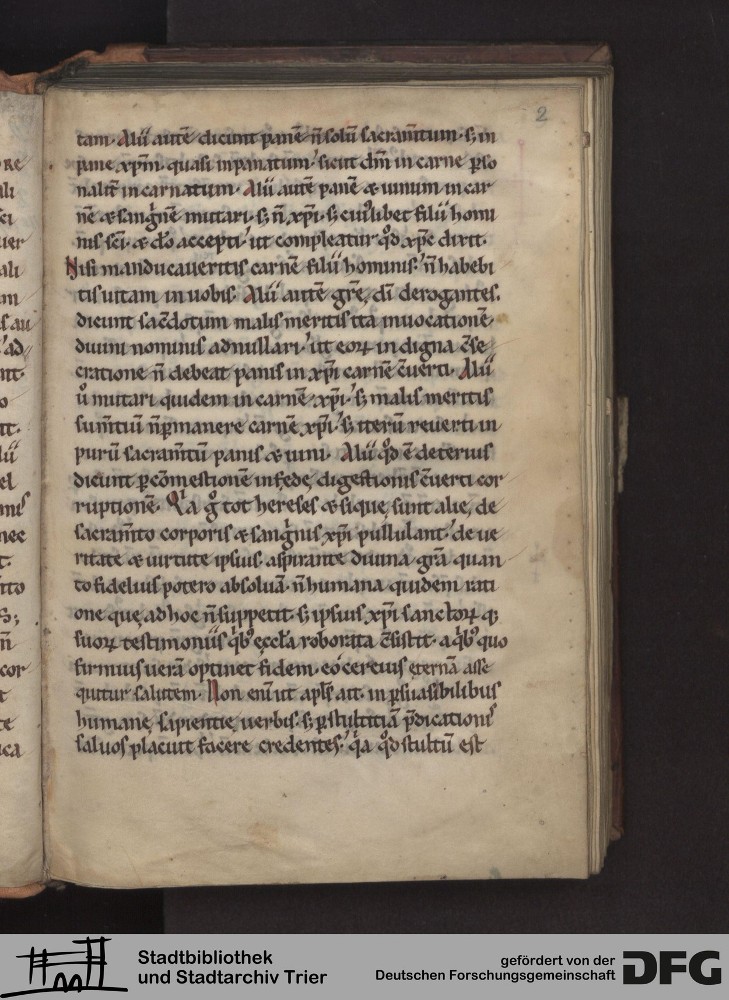 2
tam· Alii autē dicunt panē n̄ solū sacram̄tum· s; in
pane xp̄m· quasi inpanatum· sicut dm̄ in carne p̲so
nalit̄ incarnatum· Alii autē panē & uinum in car
nē & sanguinē mutari· s; n̄ xp̄i· s; cui᷒libet filii homi
nis sc̄i· & dō accepti· ut compleatur qd̄ xp̄c dixit·
Nisi manducaueritis carnē filii hominis· n̄ habebi
tis uitam in uobis· Alii autē gr̄e, dī derogantes,
dicunt sac̄dotum malis meritis ita inuocationē
diuini nominis adnullari· ut eoꝝ indigna c̄se
cratione n̄ debeat panis in xp̄i carnē c̄uerti· Alii
u̇ mutari quidem in carnē xp̄i· s; malis meritis
sum̄tiū n̄ p̲manere carnē xp̄i· s; iterū reuerti in
purū sacram̄tū panis & uini· Alii qd̄ ē deterius
dicunt p̲ comestionē in fędę digestionis c̄uerti cor
ruptionē· Qia g̊ tot hereses & siquę sunt alię, de
sacram̄to corporis & sanguinis xp̄i pullulant· de ue
ritate & uirtute ipsius· aspirante diuina gr̄a quan
to fidelius potero absoluā· n̄ humana quidem rati
one quę ad hoc n̄ suppetit· s; ipsius xp̄i sanctoꝝ q;
suoꝝ testimoniis qib᷒ ęccl̄a roborata c̄sistit· a qib᷒ quo
firmius uerā optinet fidem· eo certius eternā asse
quitur salutem· Non eni ut apl̄s ait· in p̲suasibilibus
humanę sapientię uerbis· s; p̲ stultitiā p̄dicationis
saluos placuit facere credentes· qia qd̄ stultū est
Stadtbibliothek
und Stadtarchiv Trier
gefördert von der
Deutschen Forschungsgemeinschaft
DFG